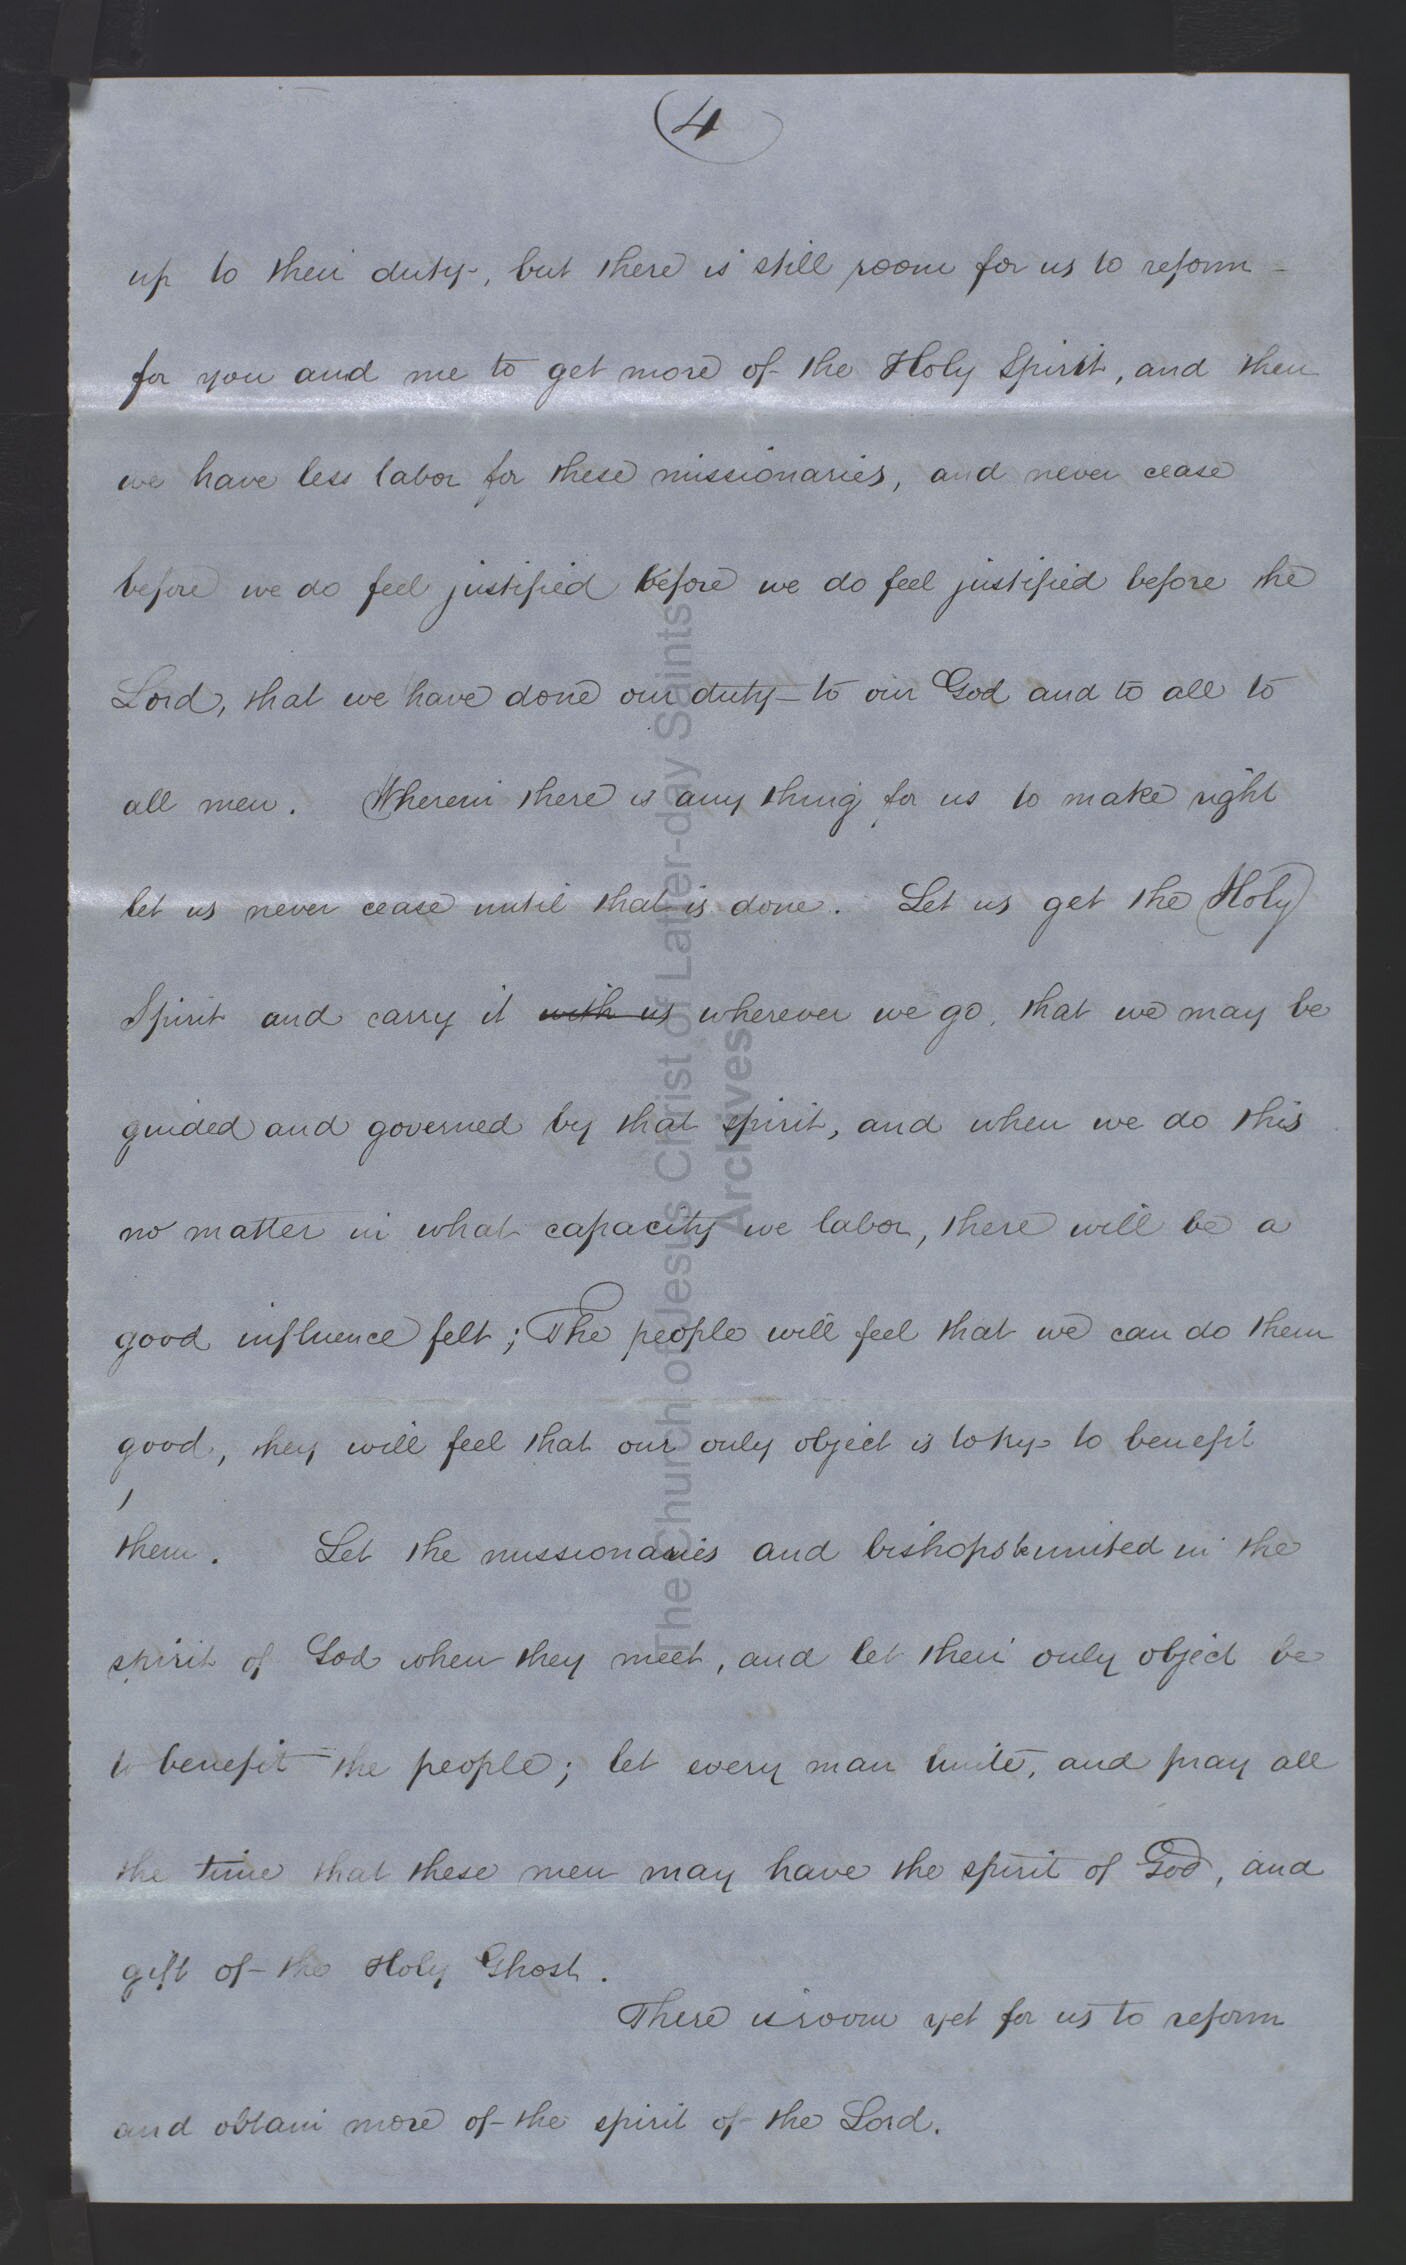 4
up to their duty, but there is still room for us to reform -
for you and me to get more of the Holy Spirit, and then
we have less labor for these missionaries, and never cease
before we do feel justified before we do feel justified before the
Lord, that we have done our duty to our God and to all to
all men. Wherein there is any thing for us to make right
let us never cease until that is done. Let us get the Holy
Spirit and carry it with us wherever we go, that we may be
guided and governed by that spirit, and when we do this
no matter in what capacity we labor, there will be a
good influence felt; The people will feel that we can do them
good, they will feel that our only object is to try to benefit
them. Let the missionaries and bishops be united in the
spirit of God when they meet, and let their only object be
to benefit the people; let every man unite, and pray all
the time that these men may have the spirit of God, and
gift of the Holy Ghost.
There is room yet for us to reform
and obtain more of the spirit of the Lord.
The Church of Jesus Christ of Latter-day Saints
Archives